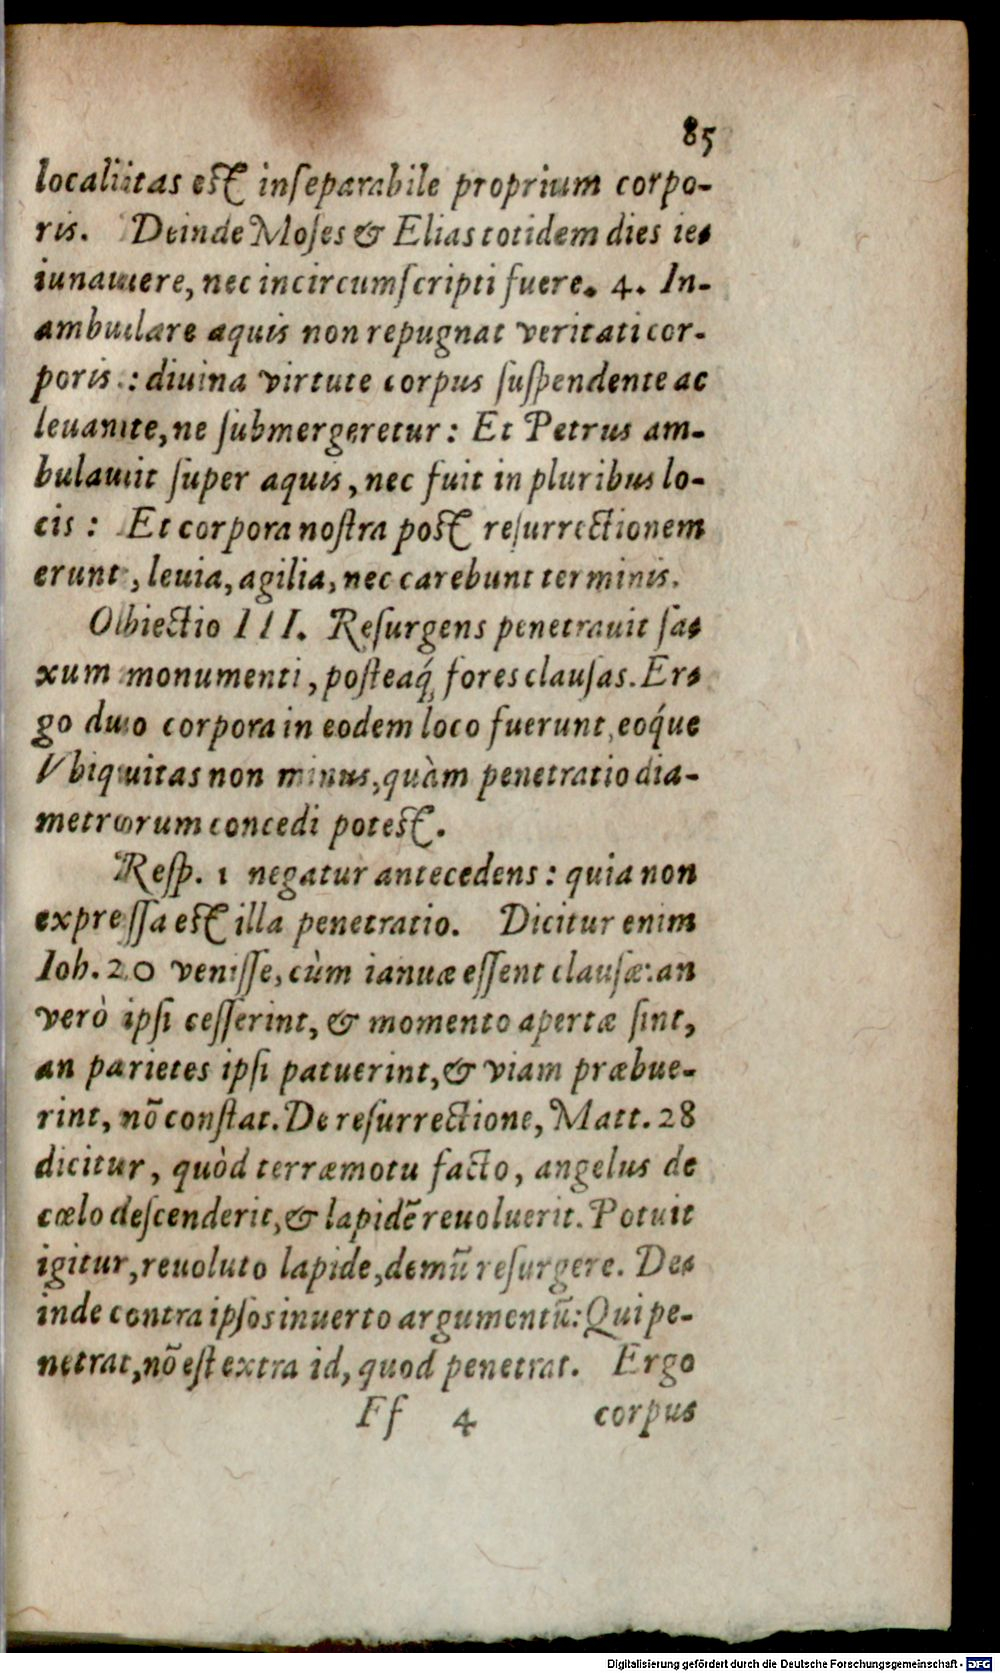 85
localitas est inseparabile proprium corpo-
ris. Deinde Moses & Elias totidem dies ie-
iunauere, nec incircumscripti fuere. 4. In-
ambulare aquis non repugnat veritati cor-
poris: diuina virtute corpus suspendente ac
leuante, ne submergeretur: Et Petrus am-
bulauit super aquis, nec fuit in pluribus lo-
cis: Et corpora nostra post resurrectionem
erunt, leuia, agilia, nec carebunt terminis.
Obiectio III. Resurgens penetrauit sa-
xum monumenti, posteaq́; fores clausas. Er-
go duo corpora in eodem loco fuerunt, eoq́ue
Vbiquitas non minus, quàm penetratio dia-
metrorum concedi potest.
Resp. 1 negatur antecedens: quia non
expressa est illa penetratio. Dicitur enim
Ioh. 20 venisse, cùm ianuæ essent clausæ: an
verò ipsi cesserint, & momento apertæ sint,
an parietes ipsi patuerint, & viam præbue-
rint, nō constat. De resurrectione, Matt. 28
dicitur, quòd terræmotu facto, angelus de
cœlo descenderit, & lapidē reuoluerit. Potuit
igitur, reuoluto lapide, demū resurgere. De-
inde contra ipsos inuerto argumentū: Qui pe-
netrat, nō est extra id, quod penetrat. Ergo
Ff 4 corpus
Digitalisierung gefördert durch die Deutsche Forschungsgemeinschaft - DFG